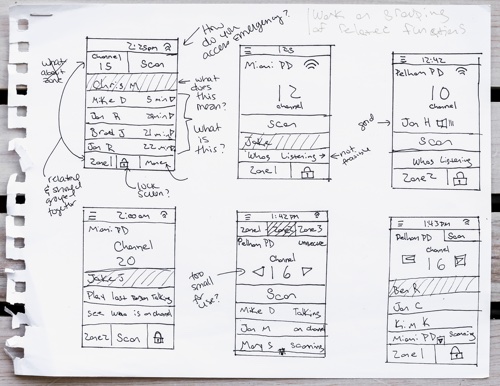 Work on Grouping
of related functions
How
do you
access emergency?
2:25am
Channel
15
Scan
What
about
zone
Chris M
what
does this
mean?
Mike D 5 min
Jon R
Brad J 21 min
Jon R 22 min
What
is this?
Zone 1
lock
screen?
grouped
together
1:25
Miami PD
12
channel
Scan
Jake
Whos Listening
not
Zone 1
12:42
Pelham PD
10
channel
Jon H
good
Scan
Whos Listening
Zone 2
2:00am
Miami PD
Channel
20
Jake J
Play last person talking
See who is on channel
Zone 2 Scan
1:42pm
Zone 1 Zone 2 Zone 3
Pelham PD
Channel
16
too
small
for
use?
Scan
Mike D Talking
Jon M on channel
Mary S scanning
1:43pm
Pelham PD Scan
Channel
16
Ben R
Jon C
Kim K
Miami PD Scanning
Zone 1